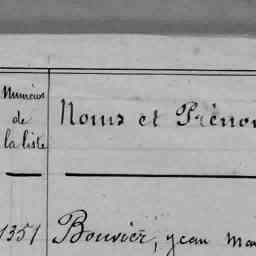 Numéros
de
la liste
Noms et Prénom
1351 Bouvier, jean Ma